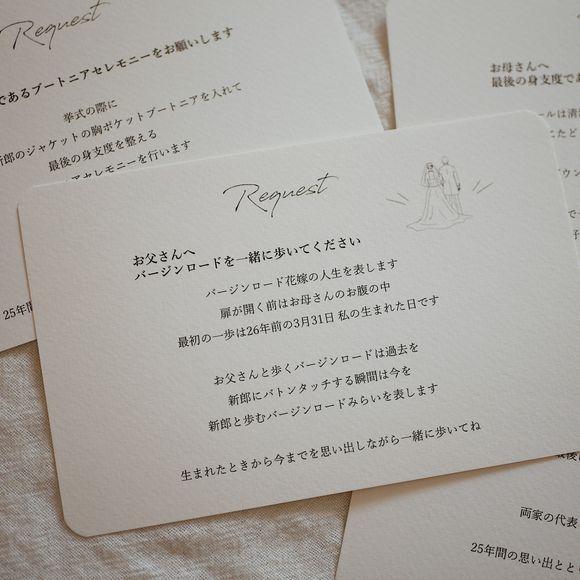 Request
であるブートニアセレモニーをお願いします
挙式の際に
新郎のジャケットの胸ポケットブートニアを入れて
最後の身支度を整える
アセレモニーを行います
25年間
お母さんへ
最後の身支度であ
ールは清
Request
お父さんへ
バージンロードを一緒に歩いてください
バージンロード花嫁の人生を表します
扉が開く前はお母さんのお腹の中
最初の一歩は26年前の3月31日 私の生まれた日です
お父さんと歩くバージンロードは過去を
新郎にバトンタッチする瞬間は今を
新郎と歩むバージンロードみらいを表します
生まれたときから今までを思い出しながら一緒に歩いてね
両家の代表
25年間の思い出とと